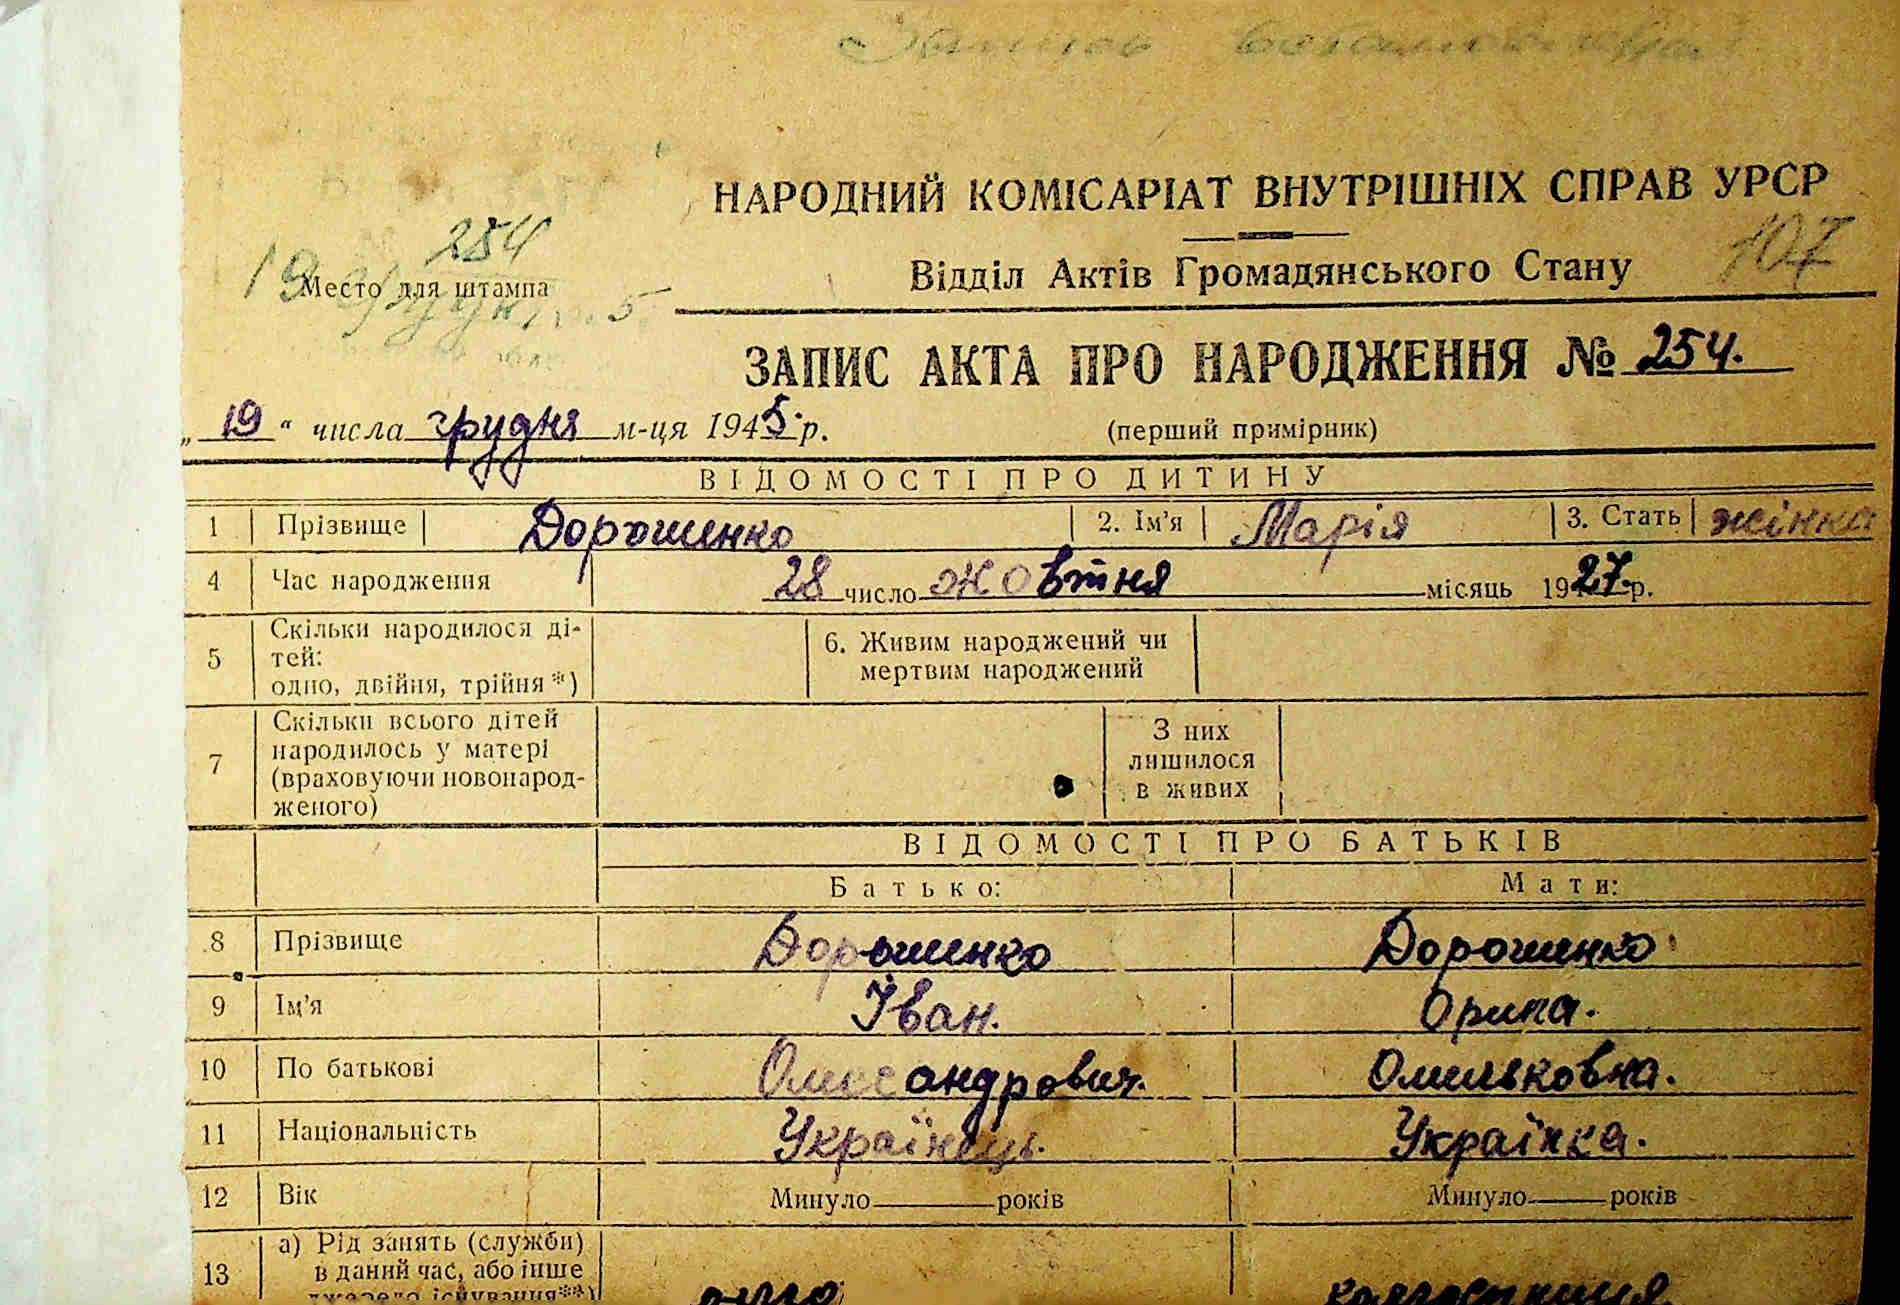 Запис
НАРОДНИЙ КОМІСАРІАТ ВНУТРІШНІХ СПРАВ УРСР
254
107
Место для штампа
19
5
Відділ Актів Громадянського Стану
ЗАПИС АКТА ПРО НАРОДЖЕННЯ № 254.
„19“ числа грудня м-ця 1945 р.
(перший примірник)
ВІДОМОСТІ ПРО ДИТИНУ
1 Прізвище Дорошенко 2. Ім'я Марія 3. Стать жінка
4 Час народження 28 число жовтня місяць 1927 р.
5 Скільки народилося ді-
тей:
одно, двійня, трійня*)
6. Живим народжений чи
мертвим народжений
7 Скільки всього дітей
народилось у матері
(враховуючи новонарод-
женого)
З них
лишилося
в живих
ВІДОМОСТІ ПРО БАТЬКІВ
Батько: Мати:
8 Прізвище Дорошенко Дорошенко
9 Ім'я Іван. Орина.
10 По батькові Олександрович. Омельковна.
11 Національність Українець. Українка.
12 Вік Минуло років Минуло років
13 а) Рід занять (служби)
в даний час, або інше
джерело існування**)
колгоспниця